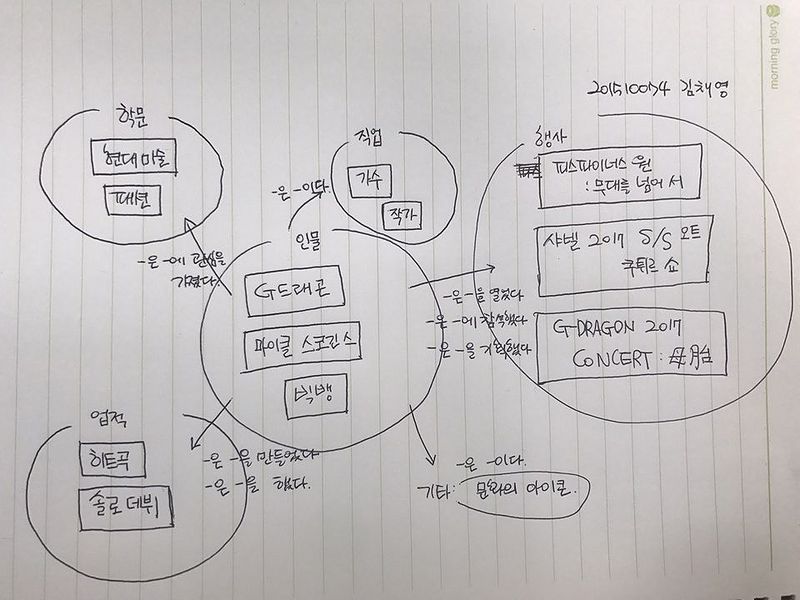 morning glory
201510074 김채영
학문
현대미술
패션
직업
가수
작가
-은 -이다.
행사
피스마이너스 원
: 무대를 넘어서
샤넬 2017 S/S 오트
쿠튀르 쇼
G-DRAGON 2017
CONCERT : 母胎
-은 -에 관심을
가졌다.
인물
G드래곤
마이클 스코긴스
빅뱅
-은 -을 열었다
-은 -에 참석했다
-은 -을 기획했다
업적
히트곡
솔로 데뷔
-은 -을 만들었다
-은 -을 했다.
-은 -이다.
기타: 문화의 아이콘.